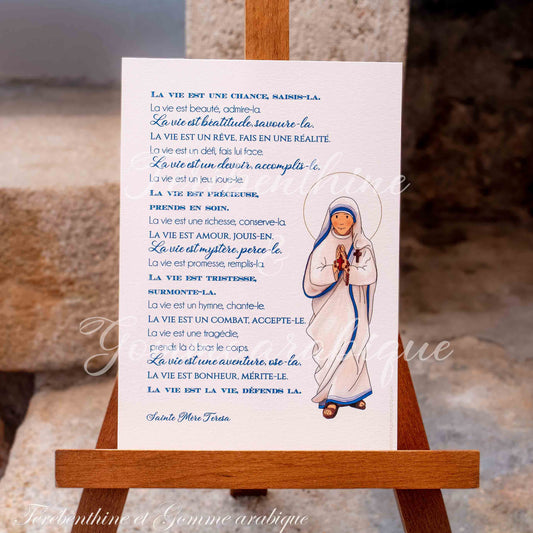 LA VIE EST UNE CHANCE, SAISIS-LA.
La vie est beauté, admire-la.
La vie est béatitude, savoure-la.
LA VIE EST UN RÊVE, FAIS EN UNE RÉALITÉ.
La vie est un défi, fais lui face.
La vie est un devoir, accomplis-le.
La vie est un jeu, joue-le.
LA VIE EST PRÉCIEUSE,
PRENDS EN SOIN.
La vie est une richesse, conserve-la.
LA VIE EST AMOUR, JOUIS-EN.
La vie est mystère, perce-le.
La vie est promesse, remplis-la.
LA VIE EST TRISTESSE,
SURMONTE-LA.
La vie est un hymne, chante-le.
LA VIE EST UN COMBAT, ACCEPTE-LE.
La vie est une tragédie,
prends là à bras le corps.
La vie est une aventure, ose-la.
LA VIE EST BONHEUR, MÉRITE-LE.
LA VIE EST LA VIE, DÉFENDS LA.
Sainte Mère Teresa
Térébenthine
&
Gomme arabique
Térébenthine et Gomme arabique